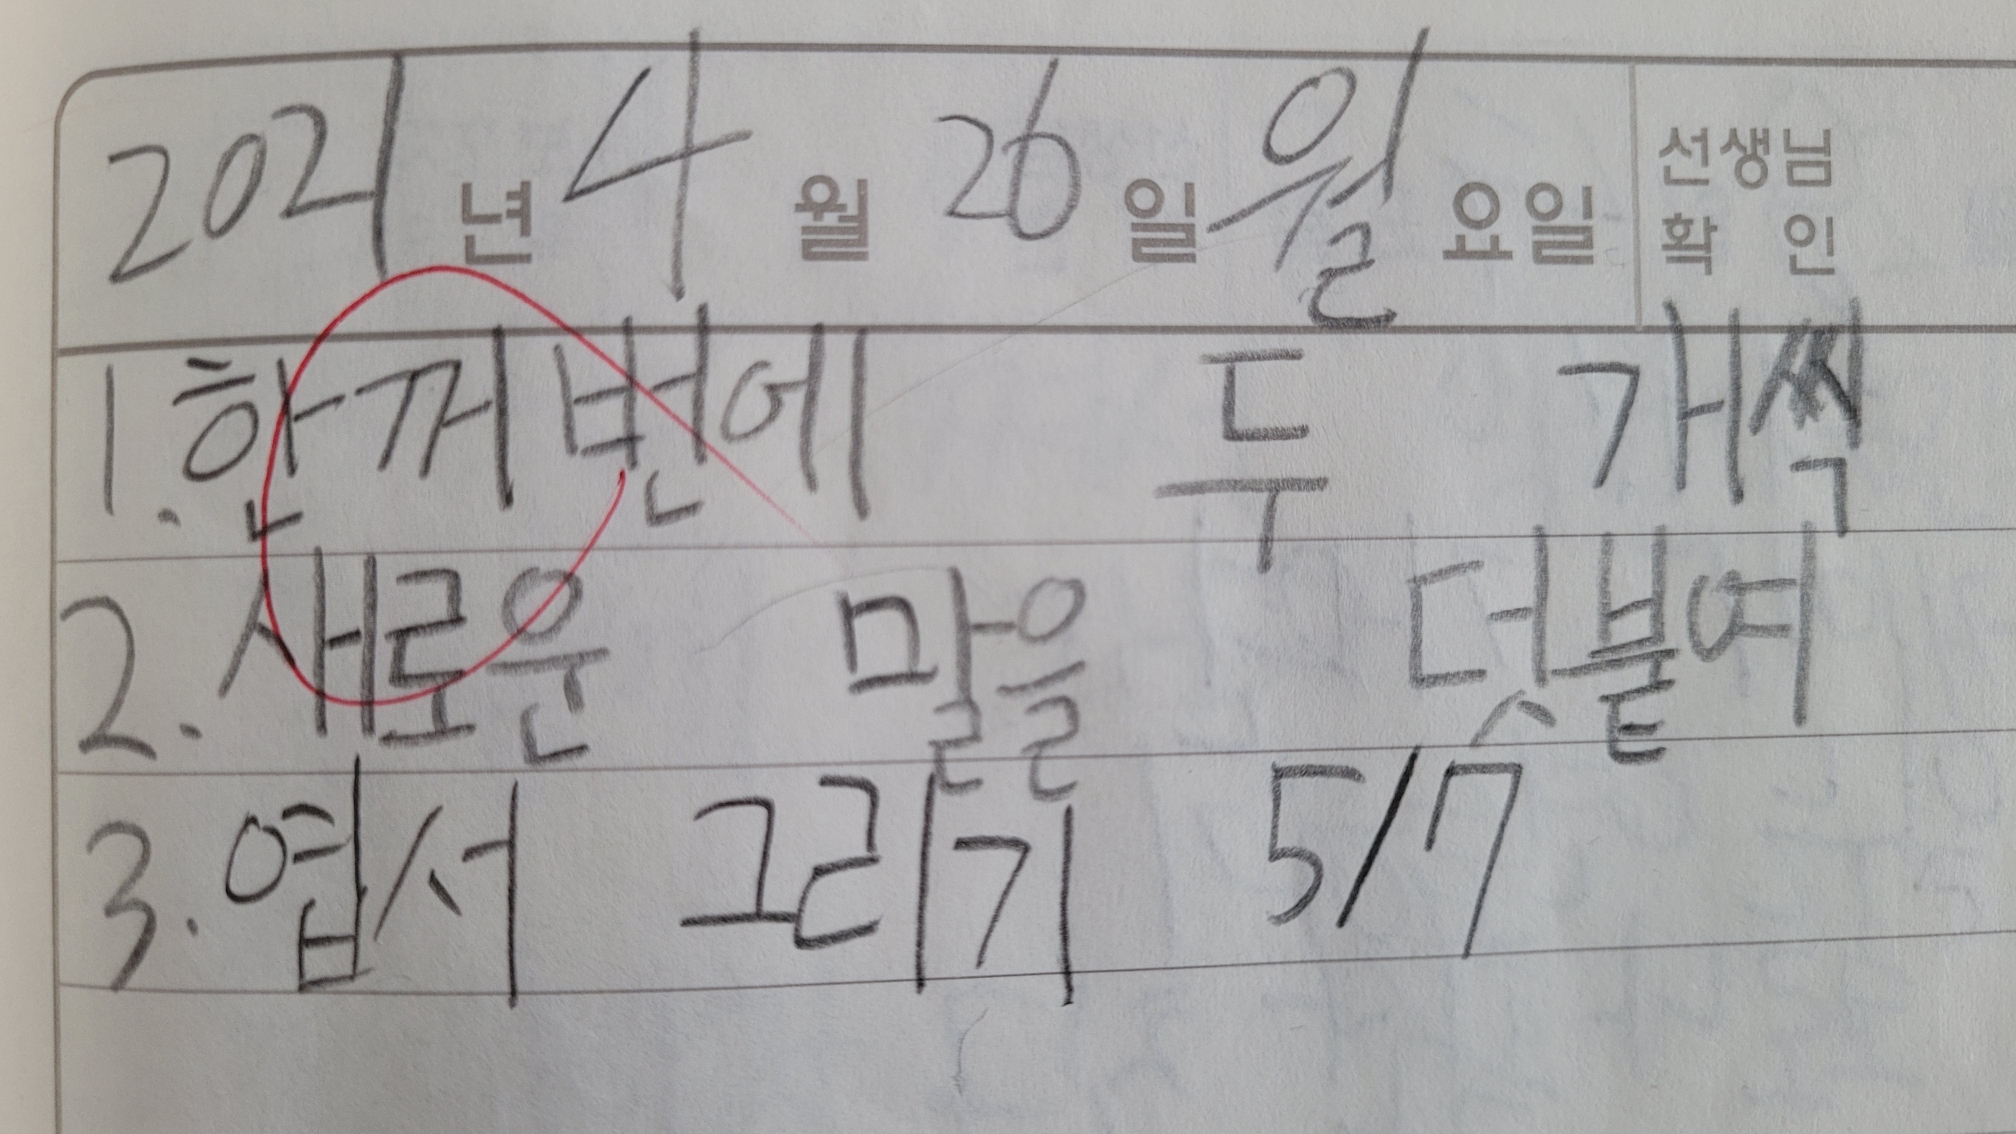 2021년 4월 26일 월요일 선생님 확인
1. 한꺼변에 두 개씩
2. 새로운 말을 덧붙여
3. 엽서 그리기 5/7